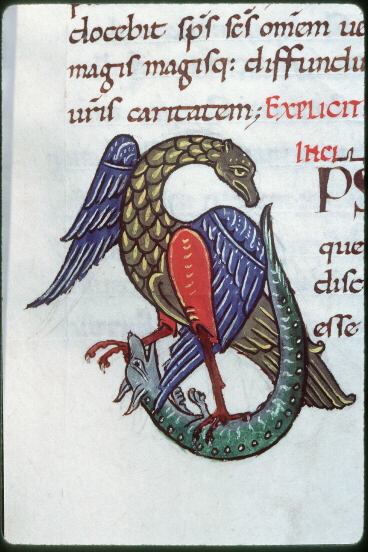 docebit sp̄s sc̄s om̄em ue
magis magisq: diffundu
uris caritatem; EXPLICIT
INCI
PS
que
disc
esse